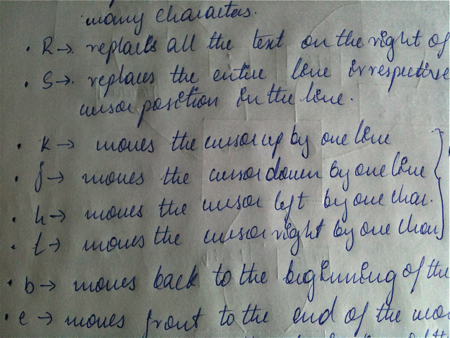 many characters.
• R → replaces all the text on the right of
• S → replaces the entire line irrespective
cursor position in the line.
• k → moves the cursor up by one line
• j → moves the cursor down by one line
• h → moves the cursor left by one char.
• l → moves the cursor right by one char
• b → moves back to the biginning of the
• e → moves front to the end of the